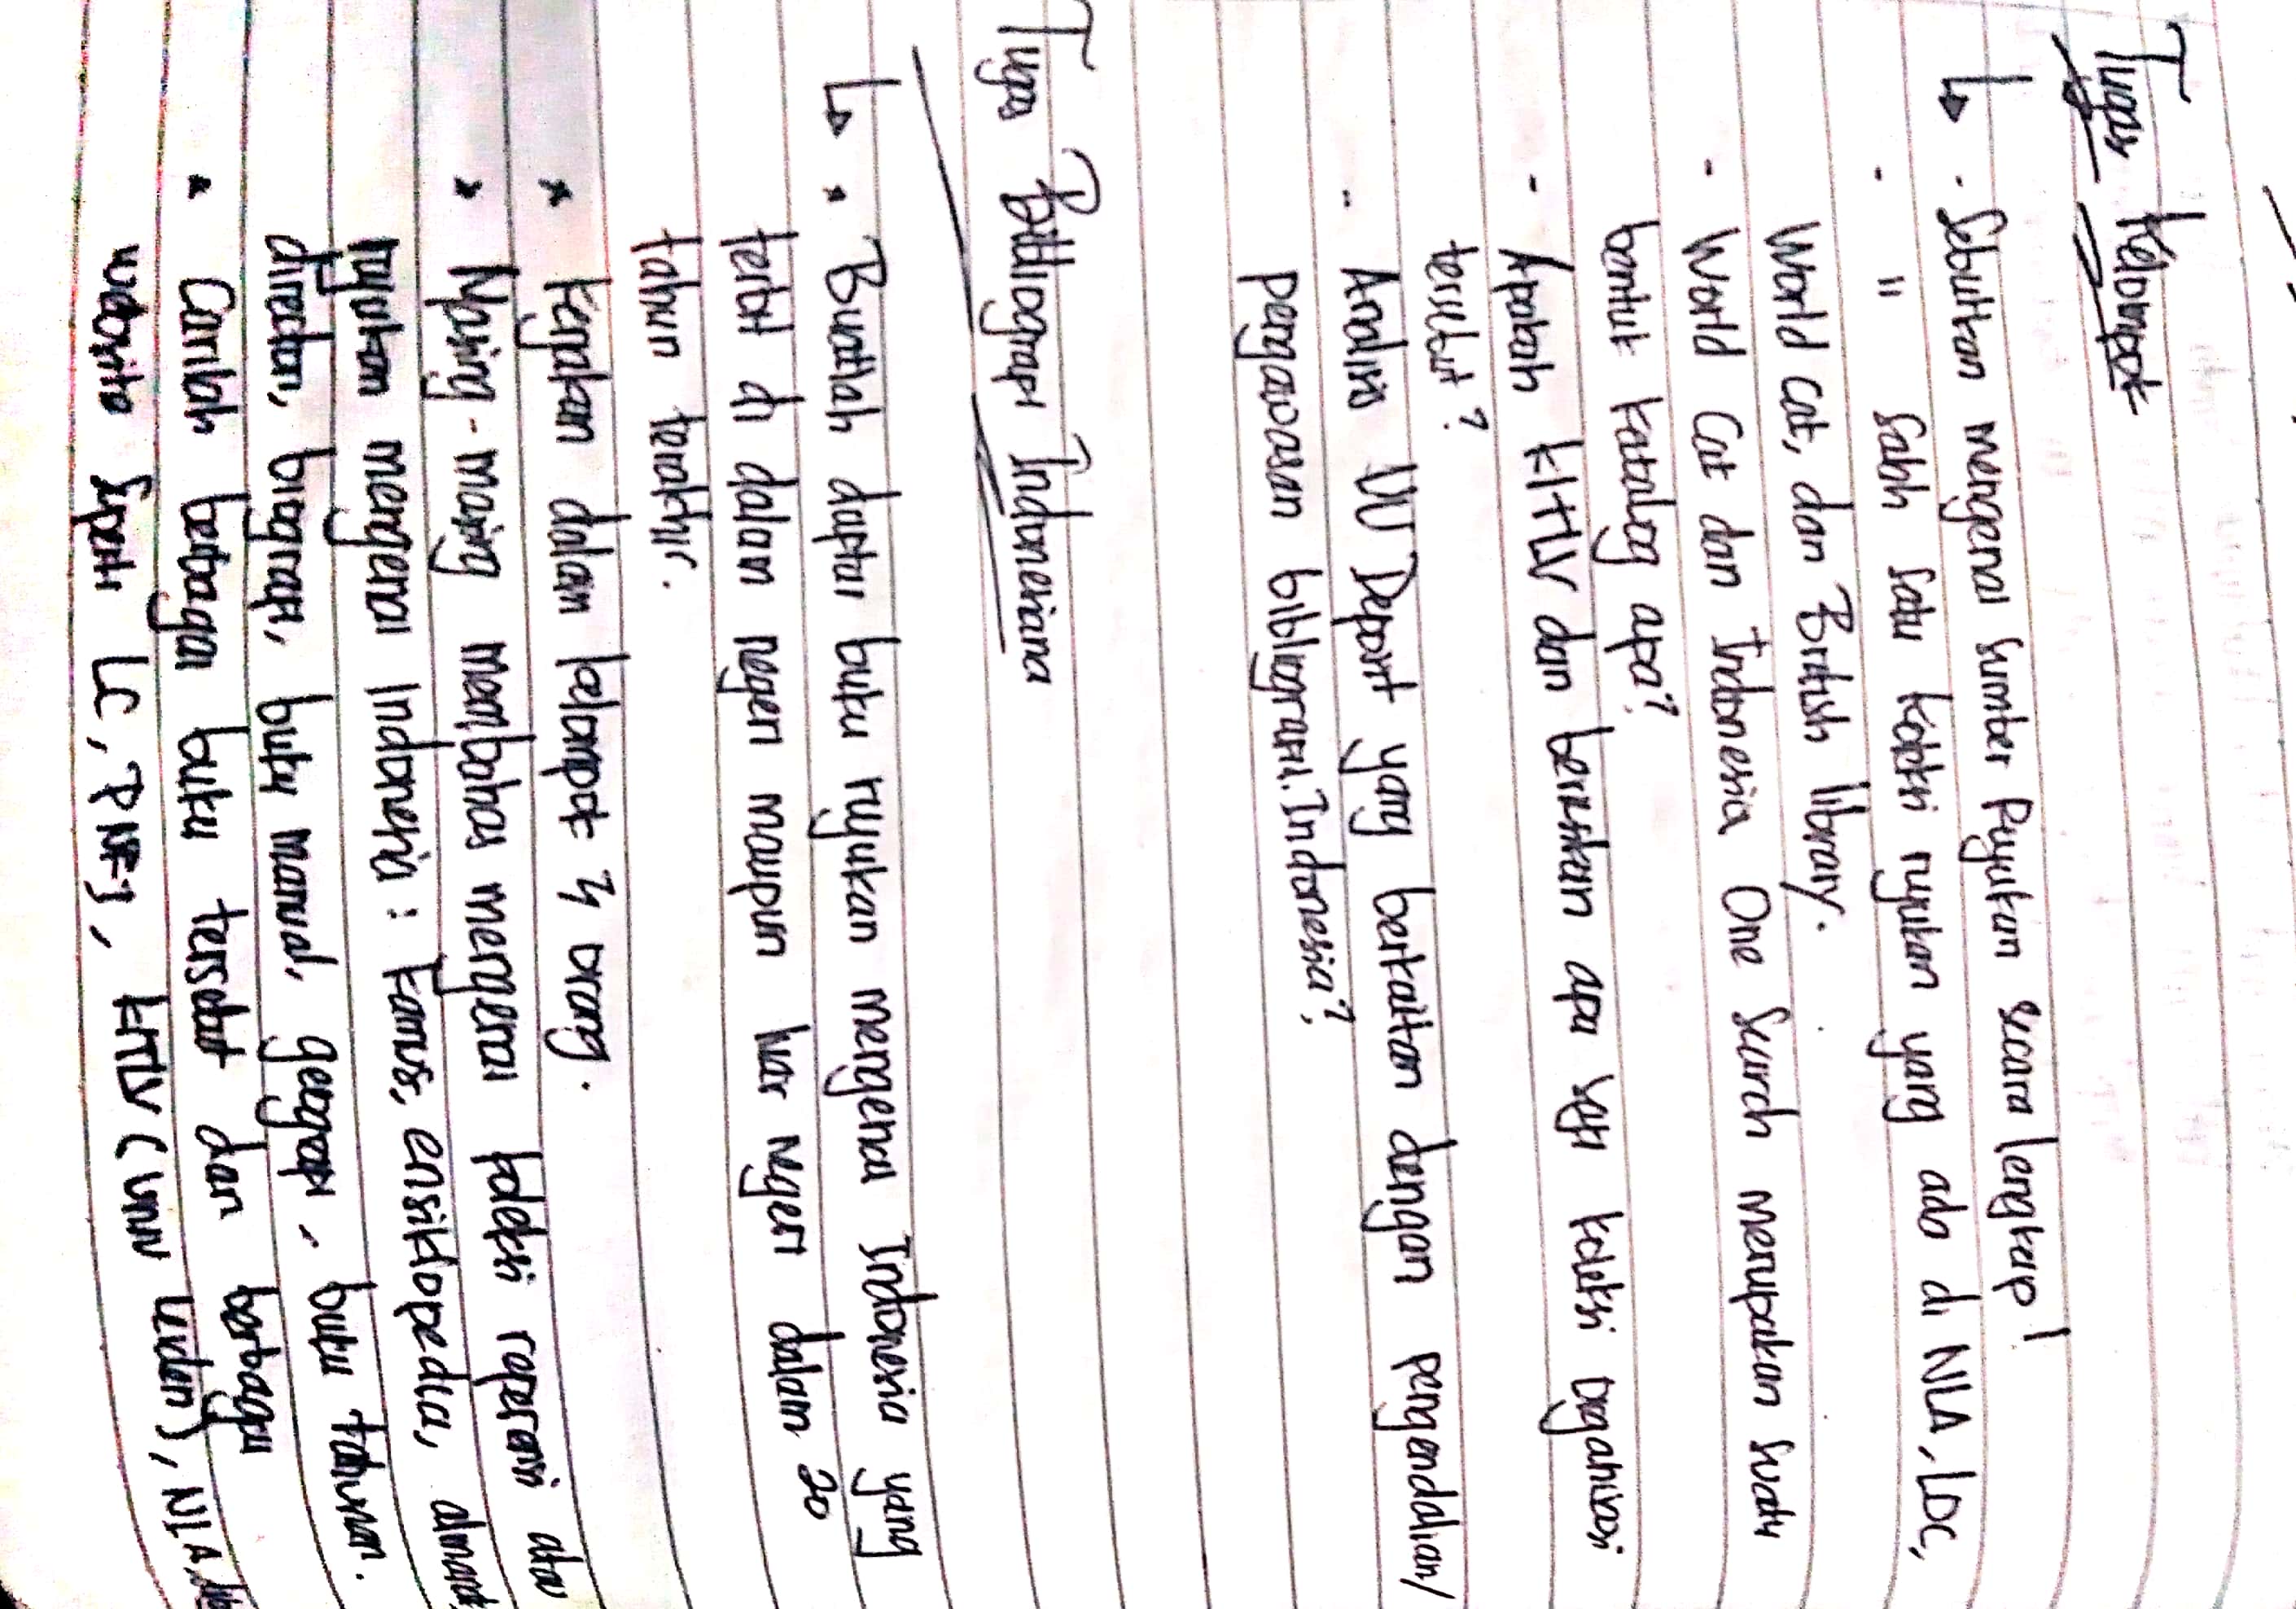 Tugas Kelompok
↳ - Sebutkan mengenai sumber Rujukan secara lengkap!
- " salah satu koleksi rujukan yang ada di NLA, LOC,
World Cat, dan British library.
- World Cat dan Indonesia One Search merupakan suatu
bentuk katalog apa?
- Apakah KITLV dan berisikan apa saja koleksi organisasi
tersebut?
- Analisis UU Deposit yang berkaitan dengan pengendalian/
pengawasan bibliografi Indonesia?
Tugas Bibliografi Indonesiana
↳ * Buatlah daftar buku rujukan mengenai Indonesia yang
terbit di dalam negeri maupun luar Negeri dalam 20
tahun terakhir.
* Kerjakan dalam kelompok 4 orang.
* Masing-masing membahas mengenai koleksi referensi atau
rujukan mengenai Indonesia: Kamus, ensiklopedia, almanak
direktori, biografi, buku manual, geografi, buku tahunan.
* Carilah berbagai buku tersebut dari berbagai
website seperti LC, PNRI, KITLV (Univ Leiden), NLA,